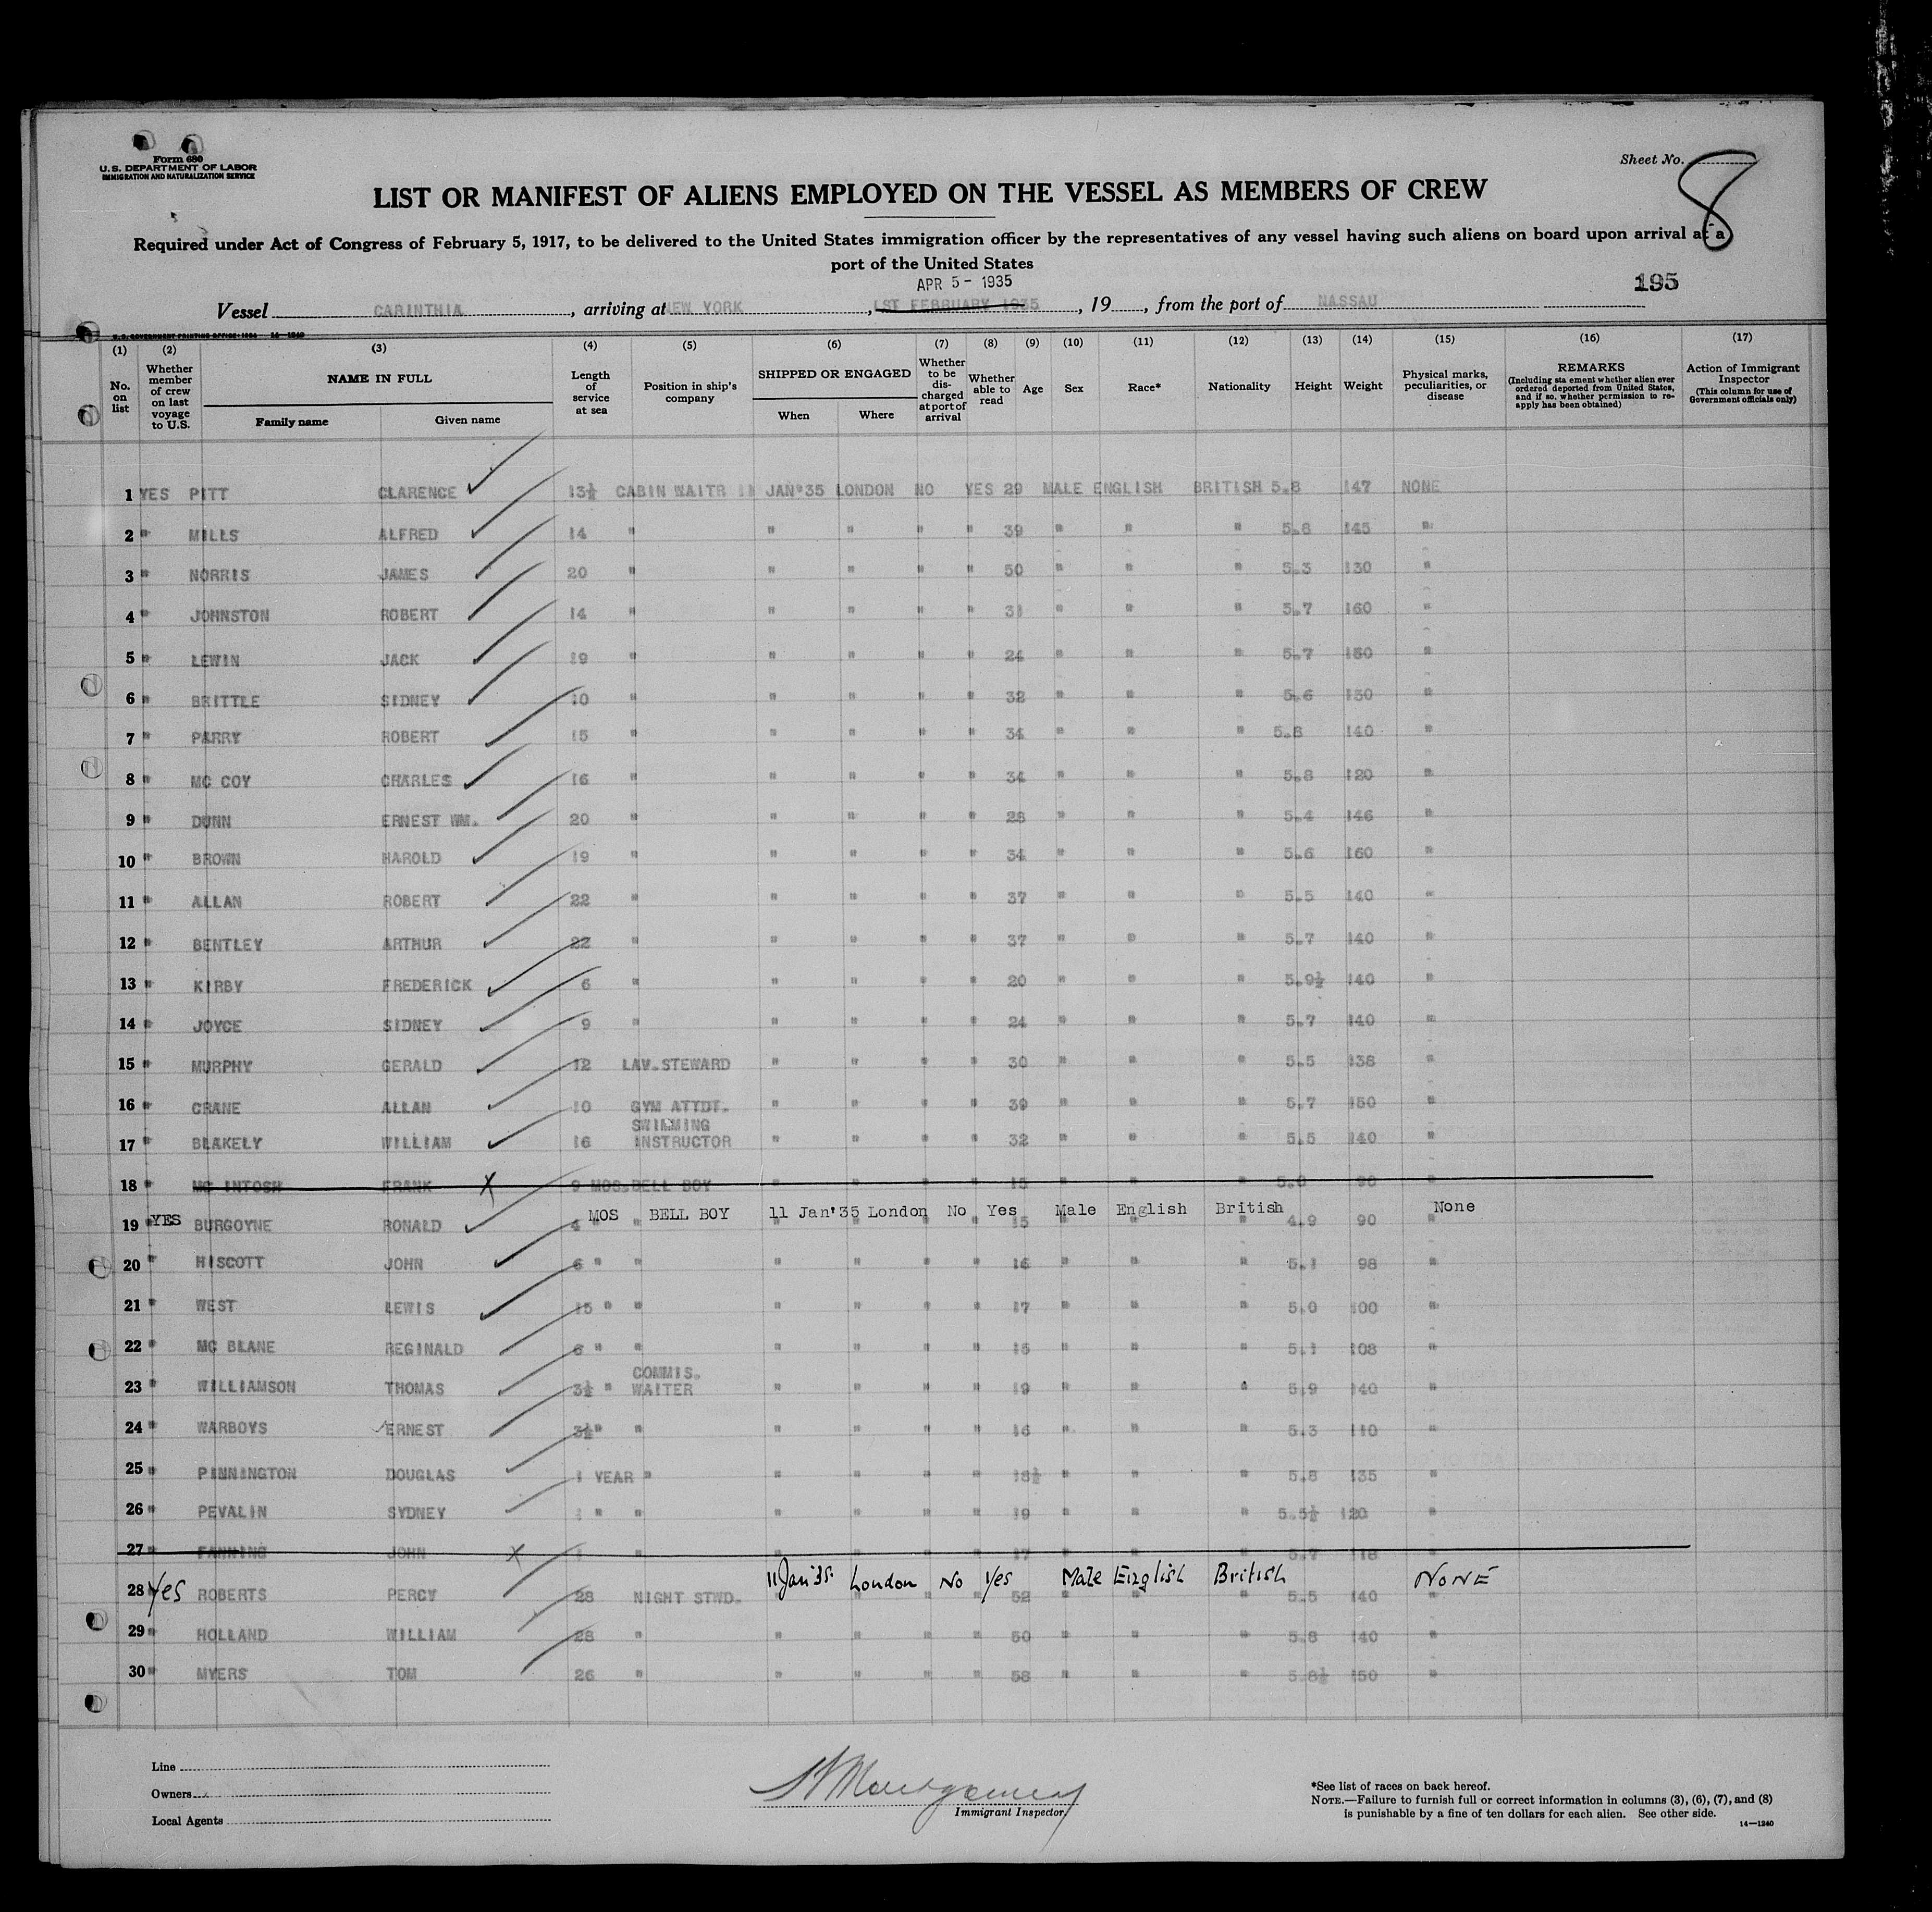 Form 680
U. S. DEPARTMENT OF LABOR
IMMIGRATION AND NATURALIZATION SERVICE
Sheet No. 8
LIST OR MANIFEST OF ALIENS EMPLOYED ON THE VESSEL AS MEMBERS OF CREW
Required under Act of Congress of February 5, 1917, to be delivered to the United States immigration officer by the representatives of any vessel having such aliens on board upon arrival at a
port of the United States
195
APR 5 - 1935
Vessel CARINTHIA, arriving at NEW YORK, 1ST FEBRUARY 1935, 19, from the port of NASSAU
U. S. GOVERNMENT PRINTING OFFICE: 1934 14—1240
(1) (2) (3) (4) (5) (6) (7) (8) (9) (10) (11) (12) (13) (14) (15) (16) (17)
No. on list
Whether member of crew on last voyage to U.S.
NAME IN FULL
Family name Given name
Length of service at sea
Position in ship's company
SHIPPED OR ENGAGED
When Where
Whether to be discharged at port of arrival
Whether able to read
Age
Sex
Race*
Nationality
Height
Weight
Physical marks, peculiarities, or disease
REMARKS
(Including statement whether alien ever ordered deported from United States, and if so, whether permission to reapply has been obtained)
Action of Immigrant Inspector
(This column for use of Government officials only)
1 YES PITT CLARENCE 13½ CABIN WAITR 11 JAN'35 LONDON NO YES 29 MALE ENGLISH BRITISH 5.8 147 NONE
2 " MILLS ALFRED 14 " " " " " 39 " " " 5.8 145 "
3 " NORRIS JAMES 20 " " " " " 50 " " " 5.3 130 "
4 " JOHNSTON ROBERT 14 " " " " " 31 " " " 5.7 160 "
5 " LEWIN JACK 19 " " " " " 24 " " " 5.7 150 "
6 " BRITTLE SIDNEY 10 " " " " " 32 " " " 5.6 130 "
7 " PARRY ROBERT 15 " " " " " 34 " " " 5.8 140 "
8 " MC COY CHARLES 16 " " " " " 34 " " " 5.8 120 "
9 " DUNN ERNEST WM. 20 " " " " " 28 " " " 5.4 146 "
10 " BROWN HAROLD 19 " " " " " 34 " " " 5.6 160 "
11 " ALLAN ROBERT 22 " " " " " 37 " " " 5.5 140 "
12 " BENTLEY ARTHUR 22 " " " " " 37 " " " 5.7 140 "
13 " KIRBY FREDERICK 6 " " " " " 20 " " " 5.9½ 140 "
14 " JOYCE SIDNEY 9 " " " " " 24 " " " 5.7 140 "
15 " MURPHY GERALD 12 LAV. STEWARD " " " " 30 " " " 5.5 138 "
16 " CRANE ALLAN 10 GYM ATTDT. " " " " 39 " " " 5.7 150 "
17 " BLAKELY WILLIAM 16 SWIMMING INSTRUCTOR " " " " 32 " " " 5.5 140 "
18 " MC INTOSH FRANK X 9 MOS. BELL BOY " " " " 15 " " " 5.0 90 "
19 " YES BURGOYNE RONALD 4 MOS BELL BOY 11 Jan'35 London No Yes 15 Male English British 4.9 90 None
20 " HISCOTT JOHN 6 " " " " " " 16 " " " 5.1 98 "
21 " WEST LEWIS 15 " " " " " " 17 " " " 5.0 100 "
22 " MC BLANE REGINALD 6 " " " " " " 15 " " " 5.1 108 "
23 " WILLIAMSON THOMAS 3½ " COMMIS. WAITER " " " " 19 " " " 5.9 140 "
24 " WARBOYS ERNEST 3½ " " " " " " 16 " " " 5.3 110 "
25 " PINNINGTON DOUGLAS 1 YEAR " " " " " 18½ " " " 5.8 135 "
26 " PEVALIN SYDNEY 1 " " " " " " 19 " " " 5.5½ 120 "
27 " FANNING JOHN X 1 " " " " " 17 " " " 5.7 118 "
28 Yes ROBERTS PERCY 28 NIGHT STWD. 11 Jan'35 London No Yes 52 Male English British 5.5 140 NONE
29 " HOLLAND WILLIAM 28 " " " " " 50 " " " 5.8 140 "
30 " MYERS TOM 26 " " " " " 58 " " " 5.8½ 150 "
Line
Owners
Local Agents
Montgomery
Immigrant Inspector
*See list of races on back hereof.
NOTE.—Failure to furnish full or correct information in columns (3), (6), (7), and (8)
is punishable by a fine of ten dollars for each alien. See other side.
14—1240